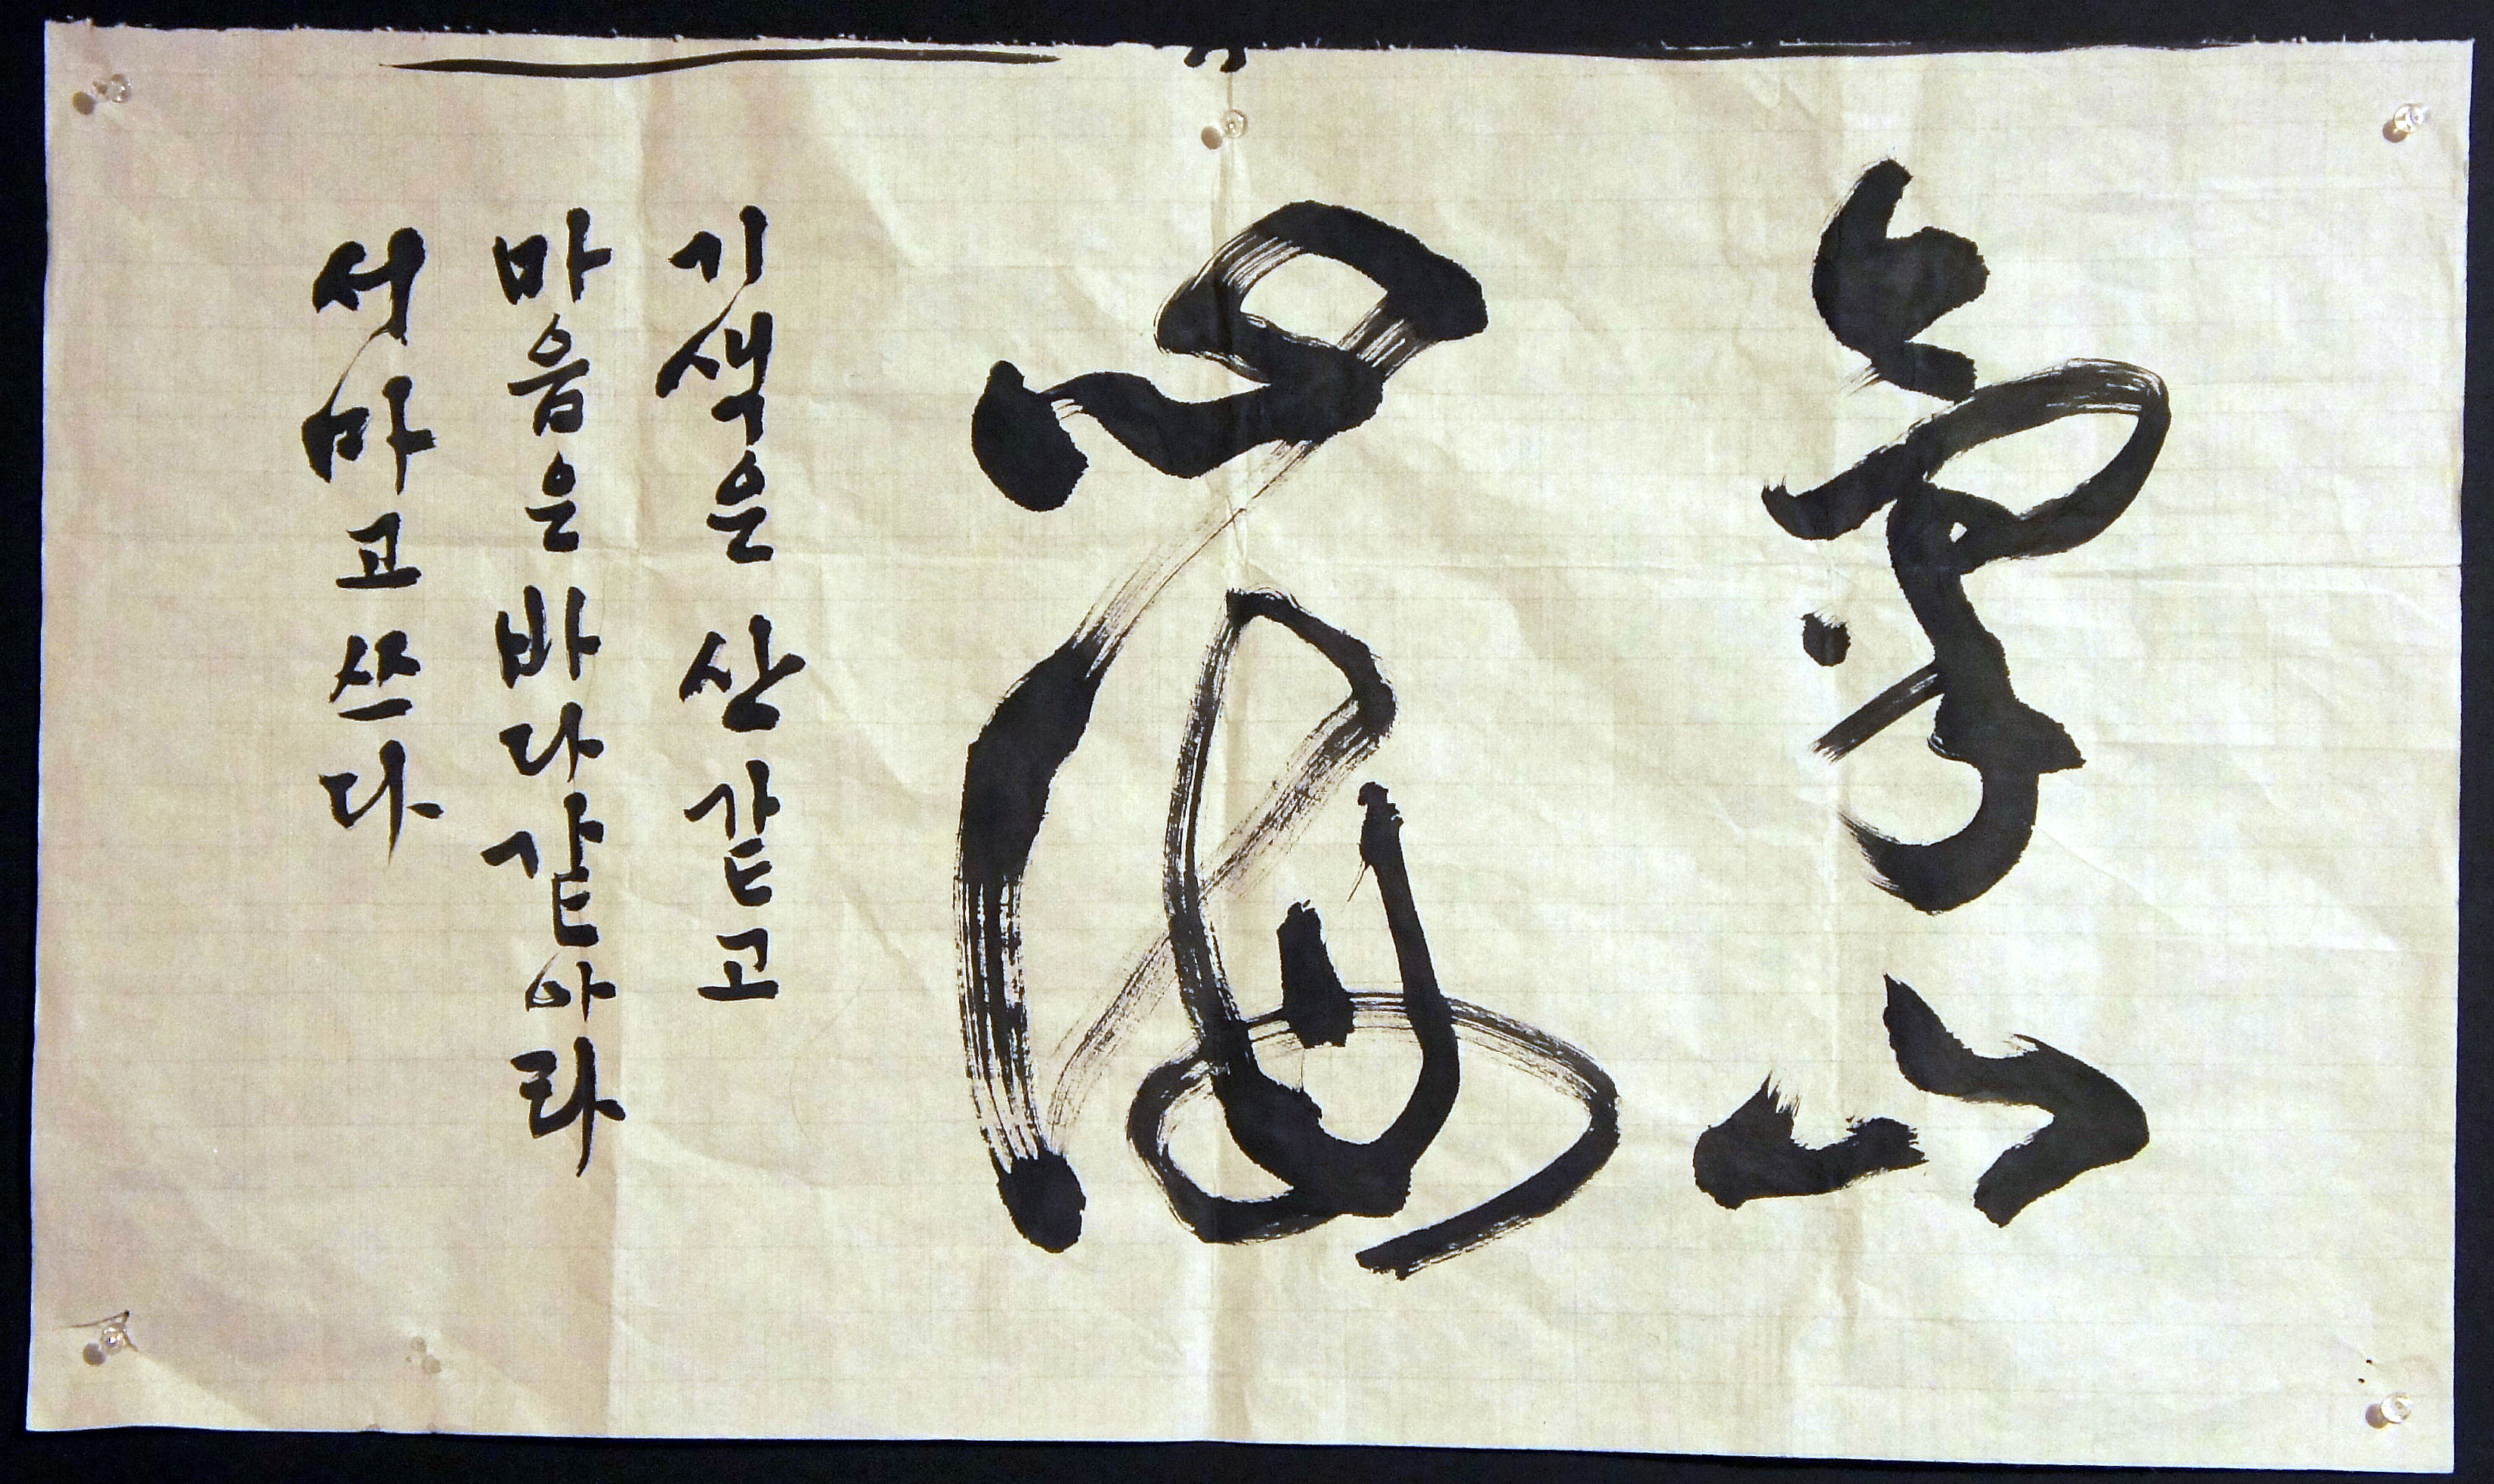 氣山
心海
기색은 산 같고
마음은 바다같아라
서마고 쓰다